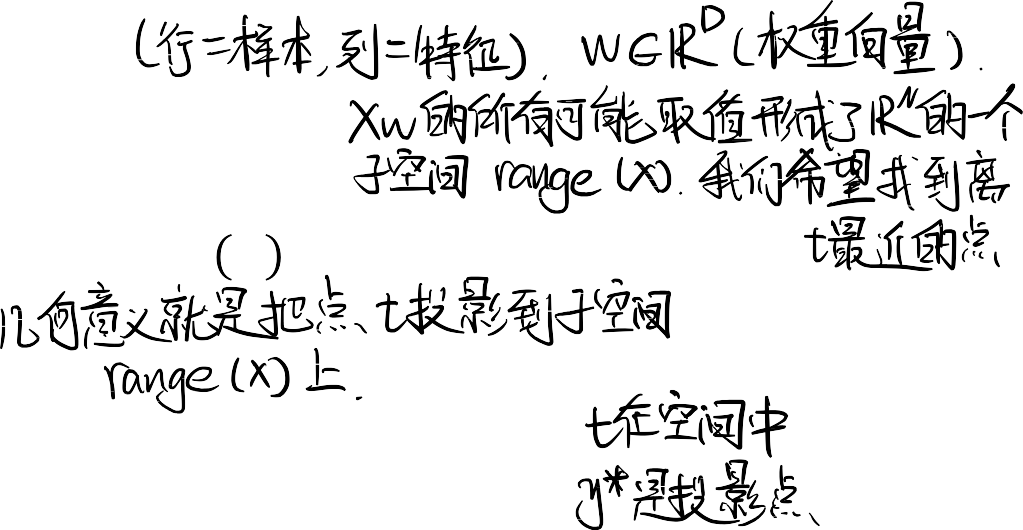 (行=样本,列=特征), w∈ℝᴰ(权重向量).
Xw的所有可能取值形成了ℝᴺ的一个
子空间 range (X). 我们希望找到离
t最近的点
( )
几何意义就是把点t投影到子空间
range (X) 上.
t在空间中
y*是投影点